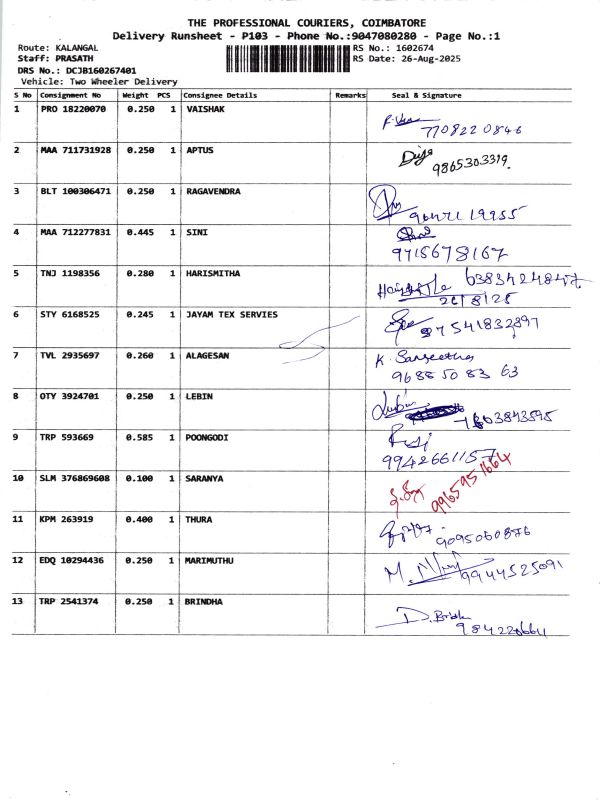 THE PROFESSIONAL COURIERS, COIMBATORE
Delivery Runsheet - P103 - Phone No.:9047080280 - Page No.:1
Route: KALANGAL
RS No.: 1602674
Staff: PRASATH
RS Date: 26-Aug-2025
DRS No.: DCJB160267401
Vehicle: Two Wheeler Delivery
S No Consignment No Weight PCS Consignee Details Remarks Seal & Signature
1 PRO 18220070 0.250 1 VAISHAK
7708220846
2 MAA 711731928 0.250 1 APTUS
9865303319.
3 BLT 100306471 0.250 1 RAGAVENDRA
4 MAA 712277831 0.445 1 SINI
9715678167
5 TNJ 1198356 0.280 1 HARISMITHA
6383424847
26/8/25
6 STY 6168525 0.245 1 JAYAM TEX SERVIES
7 TVL 2935697 0.260 1 ALAGESAN
K. Sangeetha
96885 0 83 63
8 OTY 3924701 0.250 1 LEBIN
9 TRP 593669 0.585 1 POONGODI
9942661157
10 SLM 376869608 0.100 1 SARANYA
9965951664
11 KPM 263919 0.400 1 THURA
9095060876
12 EDQ 10294436 0.250 1 MARIMUTHU
9944525091
13 TRP 2541374 0.250 1 BRINDHA